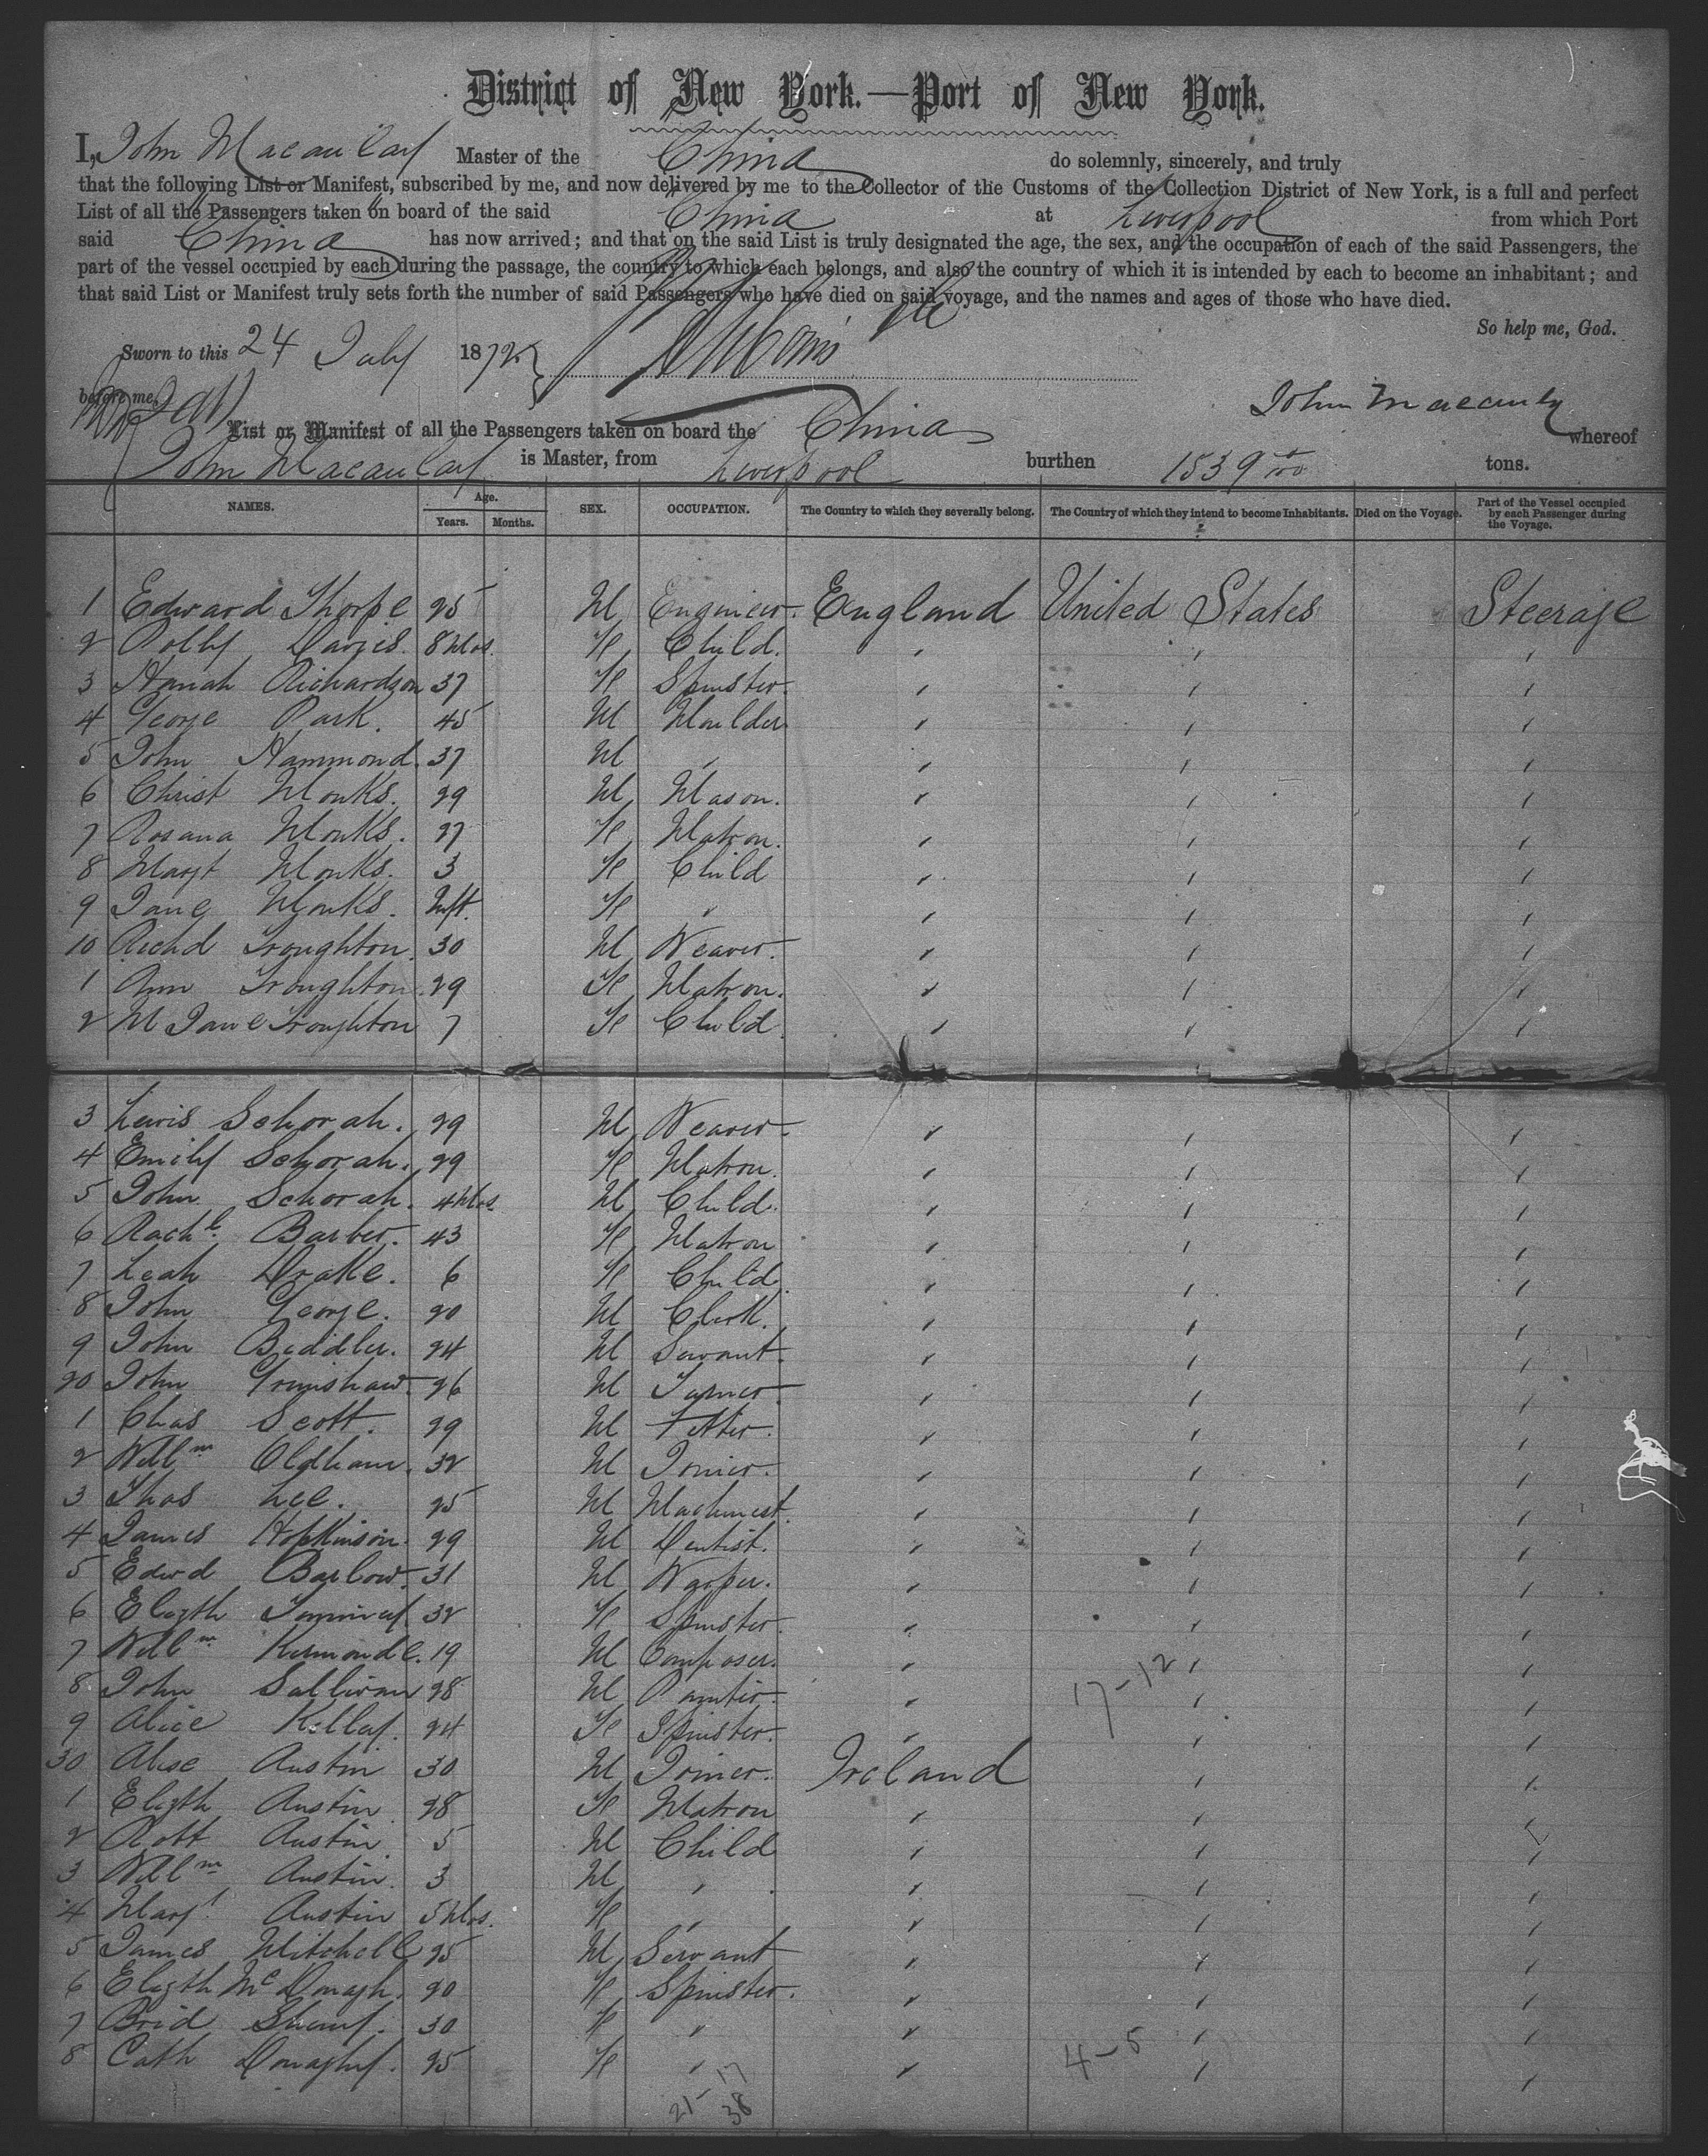 District of New York.—Port of New York.
I, John Macaulay Master of the China do solemnly, sincerely, and truly
that the following List or Manifest, subscribed by me, and now delivered by me to the Collector of the Customs of the Collection District of New York, is a full and perfect
List of all the Passengers taken on board of the said China at Liverpool from which Port
said China has now arrived; and that on the said List is truly designated the age, the sex, and the occupation of each of the said Passengers, the
part of the vessel occupied by each during the passage, the country to which each belongs, and also the country of which it is intended by each to become an inhabitant; and
that said List or Manifest truly sets forth the number of said Passengers who have died on said voyage, and the names and ages of those who have died.
So help me, God.
Sworn to this 24 July 1872
before me,
John Macaulay
List or Manifest of all the Passengers taken on board the China whereof
John Macaulay is Master, from Liverpool burthen 1539 tons.
NAMES. Age. Years. Months. SEX. OCCUPATION. The Country to which they severally belong. The Country of which they intend to become Inhabitants. Died on the Voyage. Part of the Vessel occupied by each Passenger during the Voyage.
1 Edward Thorpe 25 M Engineer. England United States Steerage
2 Polly Davies. 8 Mos. F Child. " " "
3 Hanah Richardson 37 F Spinster. " " "
4 George Park. 45 M Moulder " " "
5 John Hammond. 37 M " " " "
6 Christ Monks. 29 M Mason. " " "
7 Rosana Monks. 27 F Matron. " " "
8 Margt Monks. 3 F Child " " "
9 Jane Monks. Inft. F " " " "
10 Richd Troughton. 30 M Weaver. " " "
1 Ann Troughton. 29 F Matron. " " "
2 M Jane Troughton 7 F Child " " "
3 Lewis Schorah. 29 M Weaver. " " "
4 Emily Schorah. 29 F Matron. " " "
5 John Schorah. 4 Mos M Child. " " "
6 Rachl. Barber. 43 F Matron " " "
7 Leah Drake. 6 F Child. " " "
8 John George. 20 M Clerk. " " "
9 John Biddler. 24 M Servant. " " "
20 John Grimshaw. 26 M Turner. " " "
1 Chas Scott. 29 M Fitter. " " "
2 Willm Oldham. 32 M Joiner. " " "
3 Thos Lee. 25 M Machinest. " " "
4 James Hopkinson. 29 M Dentist. " " "
5 Edwd Barlow. 31 M Warper. " " "
6 Elizth 32 F Spinster. " " "
7 Willm Kermonde. 19 M Composer. " " "
8 John Sullivan 28 M Painter. " " "
17-12
9 Alice Kelly. 24 F Spinster. " " "
30 Austin 30 M Joiner. Ireland " "
1 Elizth Austin 28 F Matron " " "
2 Robt Austin 5 M Child " " "
3 Willm Austin. 3 M " " " "
4 Margt. Austin 5 Mos. F " " " "
5 James Mitchell 25 M Servant " " "
6 Elizth McDonagh. 20 F Spinster. " " "
7 Brid 30 F " " " "
4-5
8 Cath Donaghy. 25 F " " " "
21-17
38